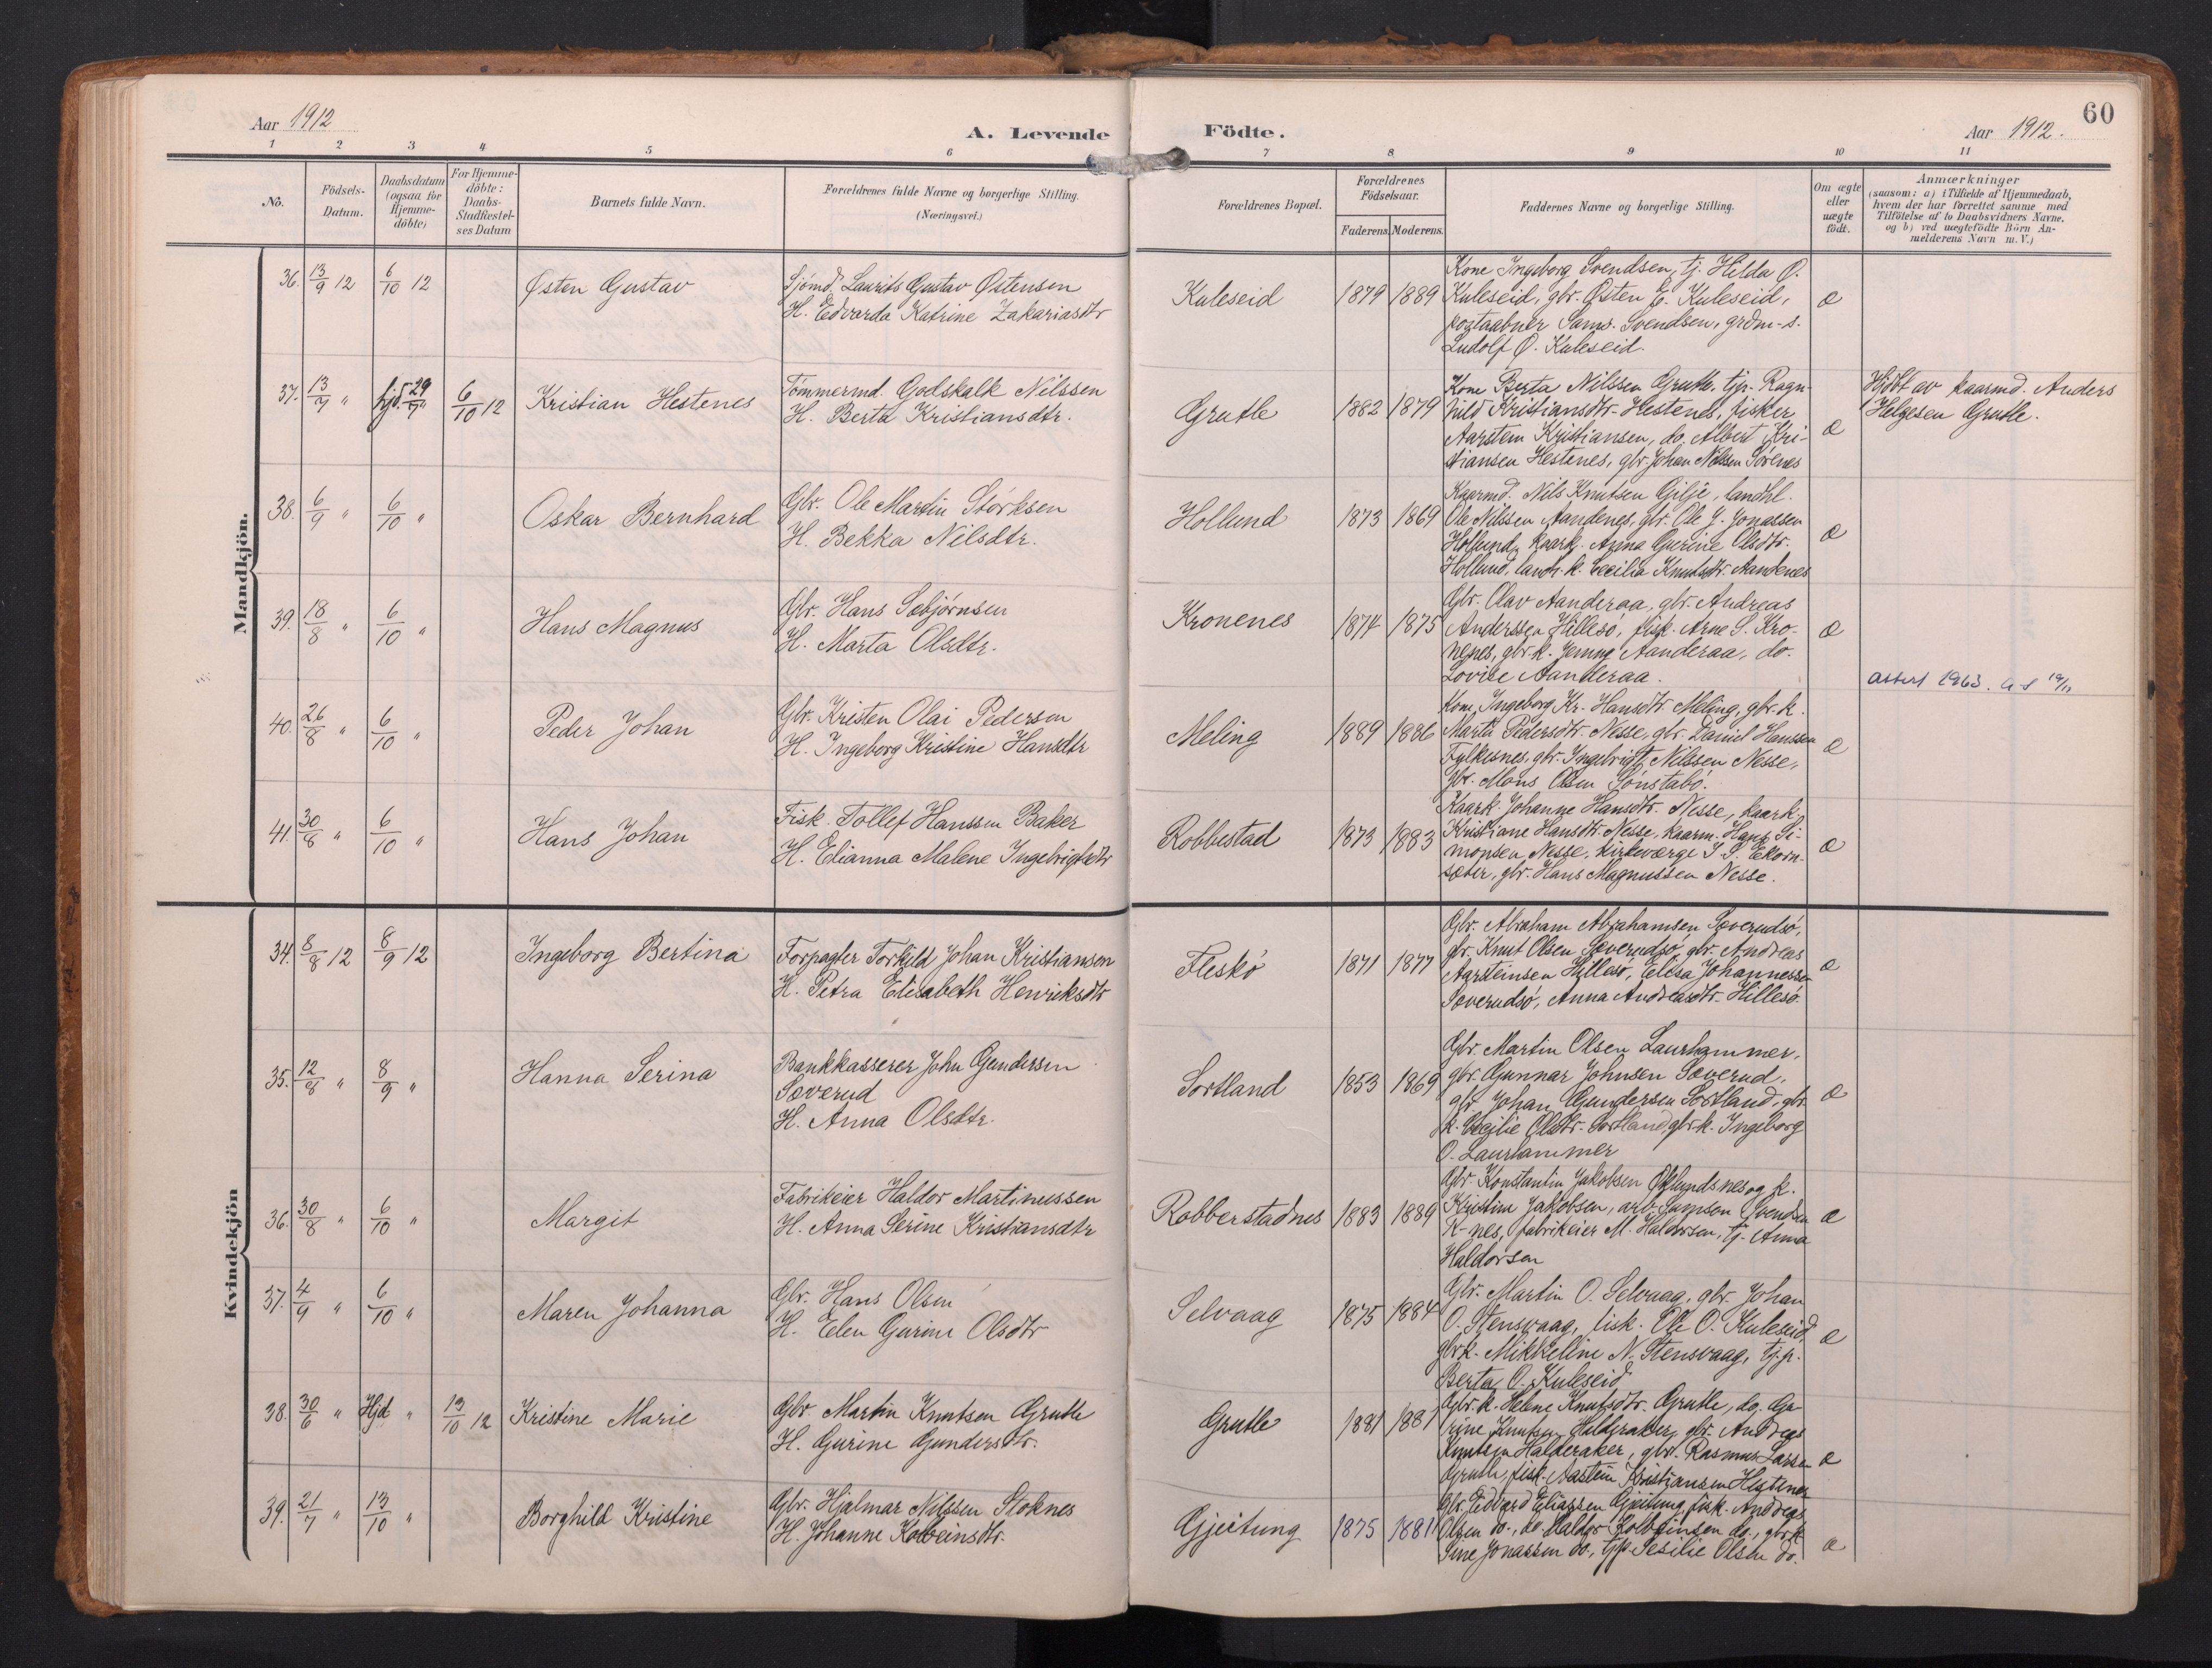 Aar 1912
A. Levende
1 2 3 4 5 6
No.
Födsels-
Datum.
Daabsdatum
(ogsaa for
Hjemme-
döbte)
For Hjemme-
döbte:
Daabs-
Stadfæstel-
ses Datum
Barnets fulde Navn.
Forældrenes fulde Navne og borgerlige Stilling.
(Næringsvei.)
Mandkjön.
36. 13/9 12 6/10 12 Østen Gustav Sjömd. Laurits Gustav Østensen
H. Edvarda Katrine Zakariasdtr
37. 13/7 " hjd. 29/7 " 6/10 12 Kristian Hestenes Tömmermd. Godskalk Nilssen
H. Berta Kristiansdtr.
38. 6/9 " 6/10 " Oskar Bernhard Gbr. Ole Martin Störksen
H. Bekka Nilsdtr.
39. 18/8 " 6/10 " Hans Magnus Gbr. Hans Sebjörnsen
H. Marta Olsdtr.
40. 26/8 " 6/10 " Peder Johan Gbr. Kristen Olai Pedersen
H. Ingeborg Kristine Hansdtr
41. 30/8 " 6/10 " Hans Johan Fisk. Tollef Hanssen Baker
H. Elianna Malene Ingebrigtsdtr
Kvindekjön
34. 8/8 12 8/9 12 Ingeborg Bertina Forpagter Torkild Johan Kristiansen
H. Petra Elisabeth Henriksdtr
35. 12/8 " 8/9 " Hanna Serina Bankkasserer John Gundersen
Sæverud
H. Anna Olsdtr.
36. 30/8 " 6/10 " Margit Fabrikeier Haldor Martinussen
H. Anna Serine Kristiansdtr
37. 4/9 " 6/10 " Maren Johanna Gbr. Hans Olsen
H. Elen Gurine Olsdtr
38. 30/6 " Hjd " 13/10 12 Kristine Marie Gbr. Martin Knutsen Grutle
H. Gurine Gundersdtr.
39. 21/7 " 13/10 " Borghild Kristine Gbr. Hjalmar Nilssen Stoknes
H. Johanne Kolbeinsdtr.
60
Födte.
Aar 1912.
7 8 9 10 11
Forældrenes Bopæl.
Forældrenes
Födselsaar.
Faderens. Moderens.
Faddernes Navne og borgerlige Stilling.
Om ægte
eller
uægte
födt.
Anmærkninger
(saasom: a) i Tilfælde af Hjemmedaab,
hvem der har forrettet samme med
Tilföielse af to Daabsvidners Navne.
og b) ved uægtefödte Börn An-
melderens Navn m. V.)
Kuleseid 1879 1889 Kone Ingeborg Svendsen, tj. Hilda O.
Kuleseid, gbr. Østen E. Kuleseid,
postaabner Sams. Svendsen, grdm-s.
Ludolf O. Kuleseid. æ
Grutle 1882 1879 Kone Berta Nilssen Grutle. tjp. Ragn-
hild Kristiansdtr. Hestenes, fisker
Aarstein Kristiansen, do. Albert Kri-
stiansen Hestenes, gbr. Johan Nilssen Sörenes æ
Hjdbt av kaarmd. Anders
Helgesen Grutle.
Hollund 1873 1869 Kaarmd. Nils Knutsen Gilje, landhl.
Ole Nilssen Aandenes, gbr. Ole J. Jonassen
Hollund, kaark. Anna Gurine Olsdtr.
Hollund, landh. k. Cecilia Knutsdtr. Aandenes æ
Kronenes 1874 1875 Gbr. Olav Aanderaa, gbr. Andreas
Anderssen Hillesö, fisk. Arne S. Kro-
nenes, gbr. k. Jenny Aanderaa, do.
Lovise Aanderaa. æ
attest 1963.
Meling 1889 1886 Kone Ingeborg Kr. Hansdtr. Meling, gbr. k.
Marta Pedersdtr. Nesse, gbr. Daniel Hanssen
Fylkesnes, gbr. Ingebrigt Nilssen Nesse,
gbr. Mons Olsen Sönstabö. æ
Robbestad 1873 1883 Kaark. Johanne Hansdtr. Nesse, kaark.
Kristiane Hansdtr. Nesse, kaarm. Hans Si-
monsen Nesse, kirkeværge S. S. Ekorn-
sæter, gbr. Hans Magnussen Nesse. æ
Fleskö 1871 1877 Gbr. Abraham Abrahamsen Sæverudsö,
gbr. Knut Olsen Sæverudsö, gbr. Andreas
Aarsteinsen Hillesö, Elisa Johannessen
Sæverudsö, Anna Andreasdtr. Hillesö. æ
Sortland 1853 1869 Gbr. Martin Olsen Laurhammer,
gbr. Gunnar Johnsen Sæverud,
gbr. Johan Gundersen Sortland, gbr.
k. Cecilie Olsdtr. Sortland, gbr k. Ingeborg
O. Laurhammer æ
Robberstadnes 1883 1889 Gbr Konstantin Jakobsen Oklundsnes og k.
Kristine Jakobsen, arb. Samsen Svendsen
R-nes, fabrikeier M. Haldorsen, tj. Anna
Haldorsen æ
Selvaag 1875 1884 Gbr. Martin O. Selvaag, gbr. Johan
O. Stensvaag, fisk. Ole O. Kuleseid,
gbrk. Mikkeline N. Stensvaag, tj.p.
Berta O. Kuleseid æ
Grutle 1881 1881 Gbr. k. Helene Knutsdtr. Grutle, do. Gu-
rine Knutsen Halderaker, gbr. Andreas
Knutsen Halderaker, gbr. Rasmus Larsen
Grutle, fisk. Aastein Kristiansen Hestenes æ
Gjeitung 1875 1881 Gbr. Edvard Eliassen Gjeitung, fisk. Andreas
Olsen do., do. Haldor Kolbeinsen do., gbr k
Sine Jonassen do., tjp. Sesilie Olsen do. æ